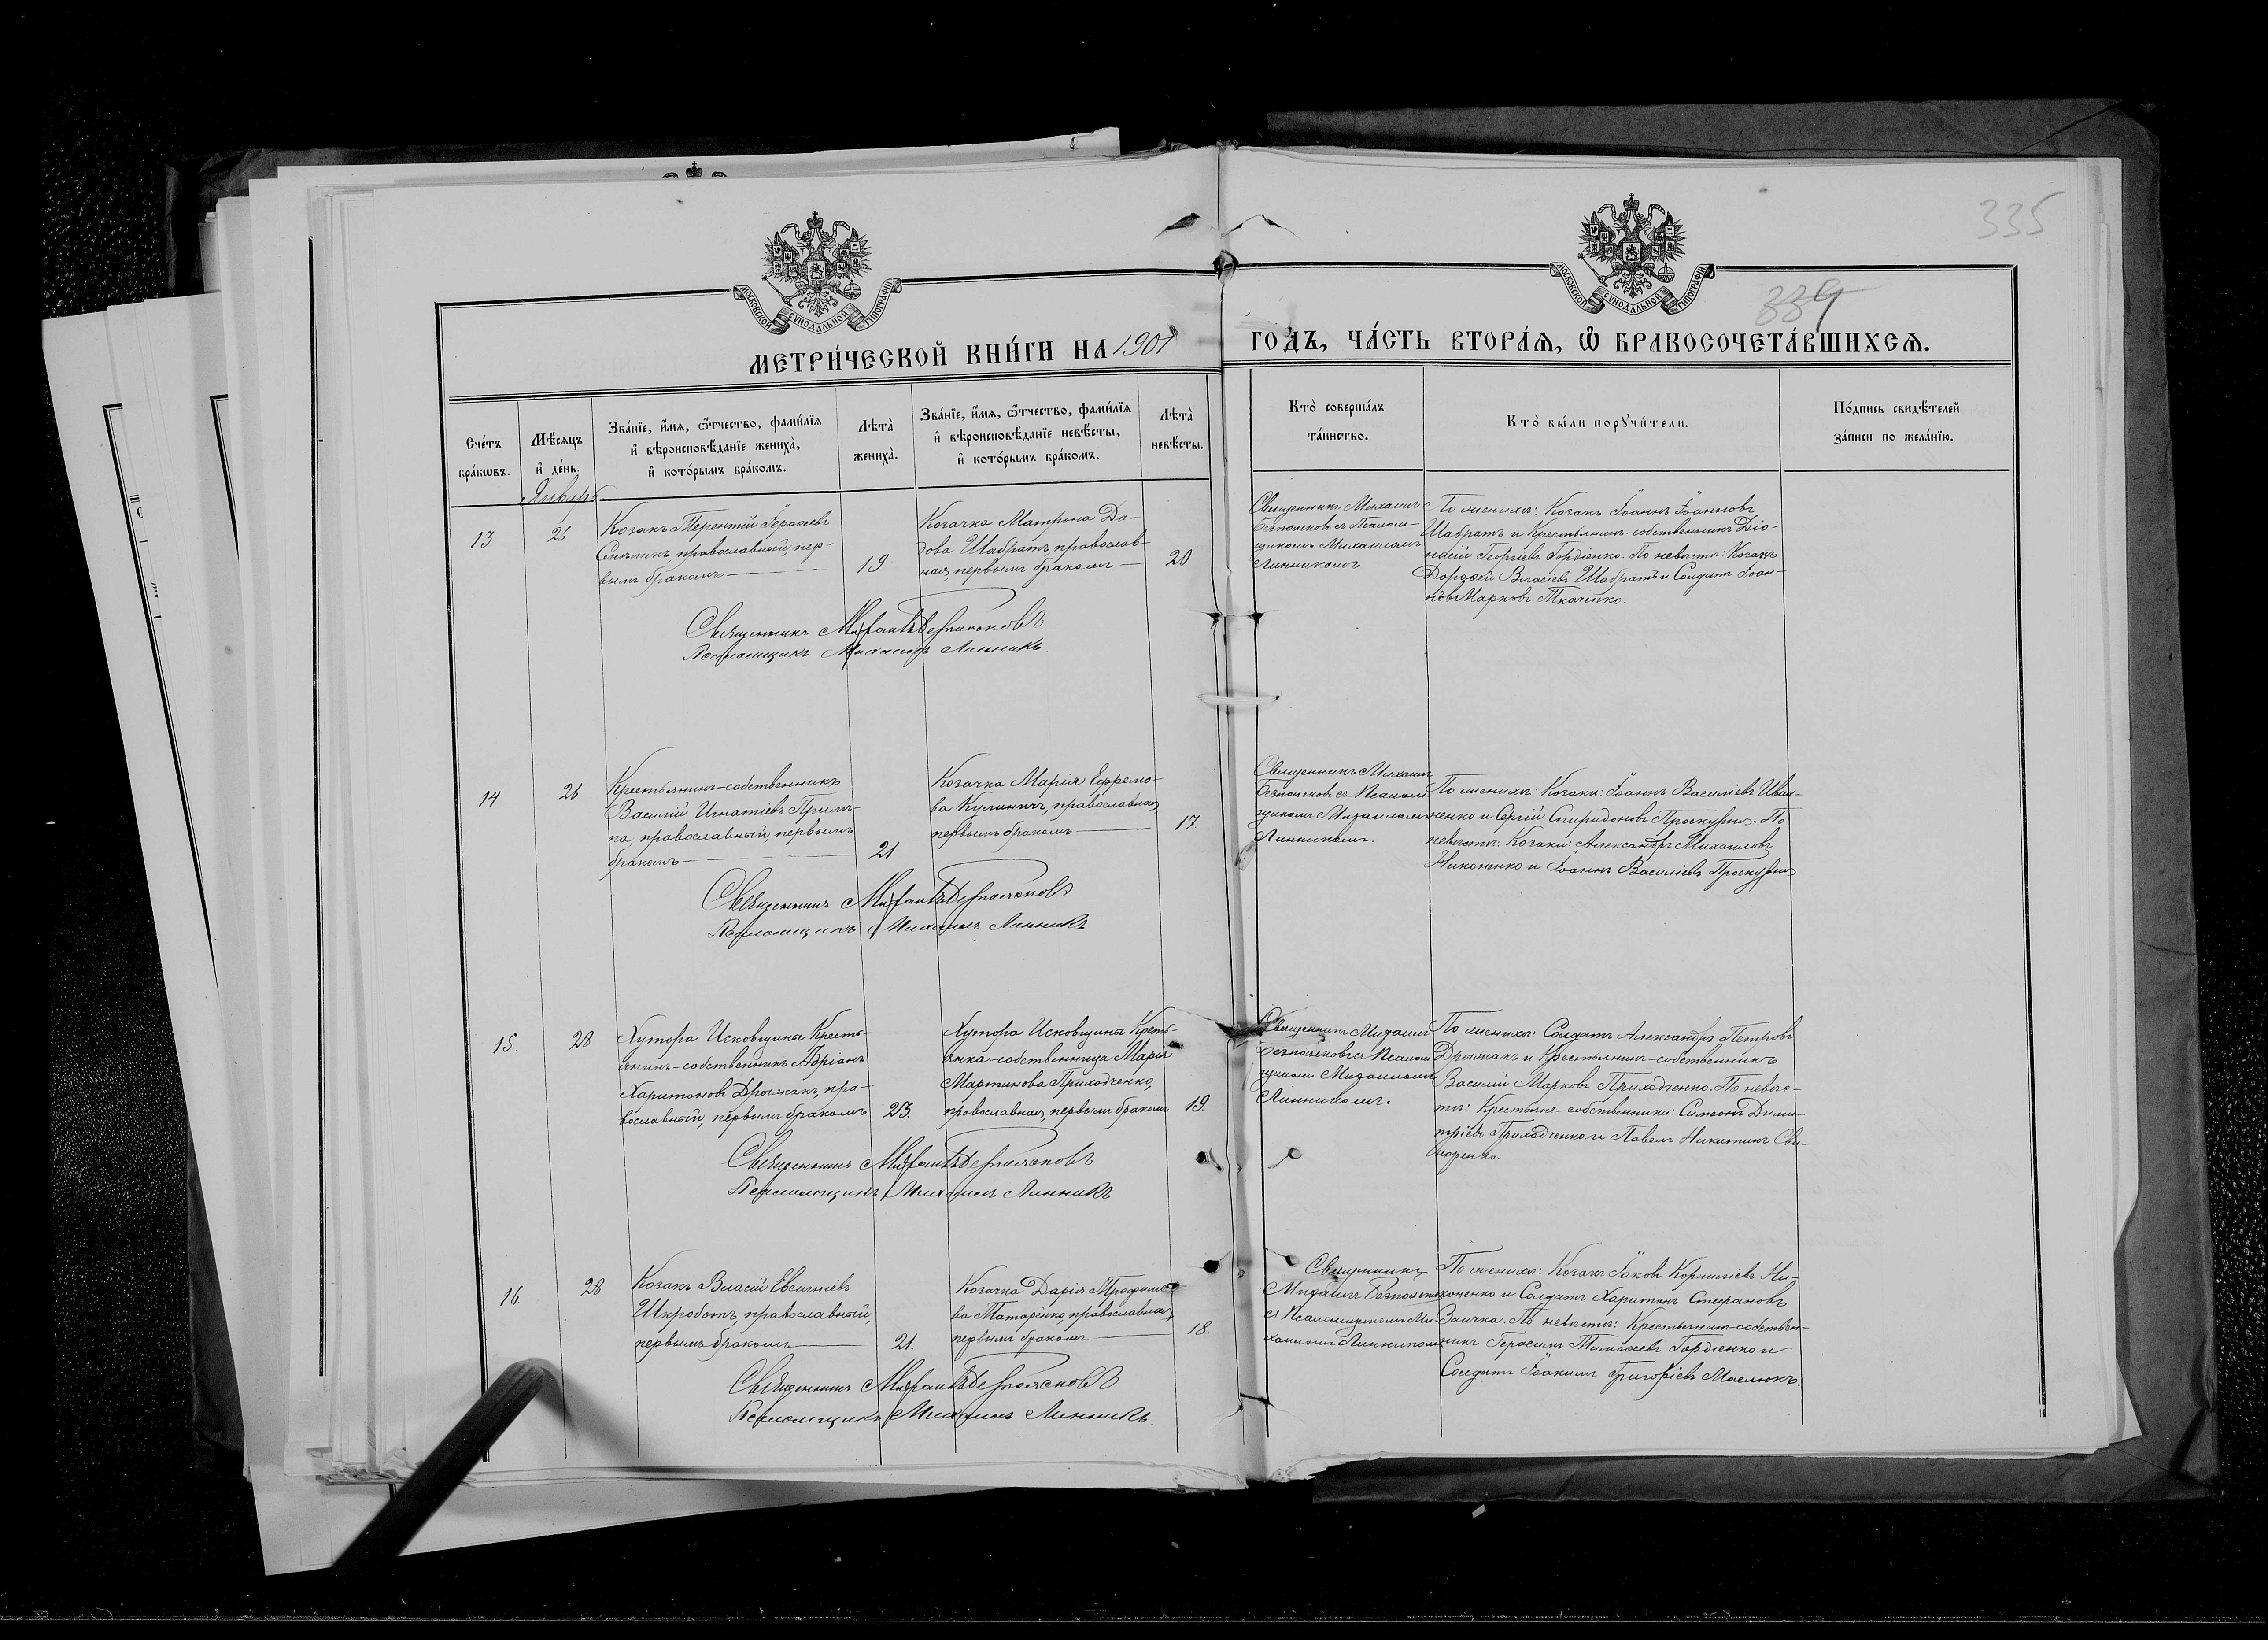 335
339
МОСКОВСКОЙ СѴНОДАЛЬНОЙ ТИПОГРАФІИ
МОСКОВСКОЙ СѴНОДАЛЬНОЙ ТИПОГРАФІИ
МЕТРИ́ЧЕСКОЙ КНИ́ГИ НА 1901
ГОДЪ, ЧА́СТЬ ВТОРА́Ѧ, Ѽ БРАКОСОЧЕТА́ВШИХСѦ.
Сче́тъ
бра́кѡвъ.
Мѣ́сяцъ
и҆ де́нь.
Зва́нїе, и҆́мя, ѻ҆́тчество, фами́лїя
и҆ вѣроисповѣ́данїе жениха̀,
и҆ кото́рымъ бра́комъ.
Лѣта̀
жениха̀.
Зва́нїе, и҆́мя, ѻ҆́тчество, фами́лїя
и҆ вѣроисповѣ́данїе невѣ́сты,
и҆ кото́рымъ бра́комъ.
Лѣта̀
невѣ́сты.
Кто̀ соверша́лъ
та́инство.
Кто̀ бы́ли порꙋчи́тели.
По́дпись свидѣ́телей
за́писи по жела́нїю.
Январь
13
26
Козакъ Терентій
православный, пер-
вымъ бракомъ
19
Козачка Матрона Да-
дова Шабратъ, православ-
ная, первымъ бракомъ
20
Священникъ Михаилъ
съ Псалом-
щикомъ Михаиломъ
Линникомъ
По женихѣ: Козакъ Іоаннъ Іоанновъ
Шабратъ и Крестьянинъ-собственникъ Діо-
нисій Георгіевъ Гордіенко. По невѣстѣ: Козакъ
Дорофей Власіевъ Шабратъ и Солдатъ Іоан-
нъ Марковъ Ткаченко.
Священникъ Михаилъ
Псаломщикъ Михаилъ Линникъ
14
26
Крестьянинъ-собственникъ
Василій Игнатіевъ
православный, первымъ
бракомъ
21
Козачка Марія Ефремо-
ва православная,
первымъ бракомъ
17.
Священникъ Михаилъ
съ Псалом-
щикомъ Михаиломъ
Линникомъ.
По женихѣ: Козаки: Іоаннъ Василіевъ Иван-
ненко и Сергій Спиридоновъ Проскурня. По
невѣстѣ: Козаки: Александръ Михаиловъ
Никоненко и Іоаннъ Василіевъ Проскурня
Священникъ Михаилъ
Псаломщикъ Михаилъ Линникъ
15.
28
Хутора Исковщина Кресть-
янинъ-собственникъ Адріанъ
Харитоновъ пра-
вославный, первымъ бракомъ
23.
Хутора Исковщина Кресть-
янка-собственница Марія
Мартинова Приходченко,
православная, первымъ бракомъ
19.
Священникъ Михаилъ
съ Псалом-
щикомъ Михаиломъ
Линникомъ.
По женихѣ: Солдатъ Александръ Петровъ
и Крестьянинъ-собственникъ
Василій Марковъ Приходченко. По невѣс-
тѣ: Крестьяне-собственники: Симеонъ Дими-
тріевъ Приходченко и Павелъ Никитинъ Сви-
наренко.
Священникъ Михаилъ
Псаломщикъ Михаилъ Линникъ
16.
28
Козакъ Власій Евсигніевъ
Шкроботъ, православный,
первымъ бракомъ
21.
Козачка Дарія Трофимо-
ва Татаренко, православная,
первымъ бракомъ
18.
Священникъ
Михаилъ
съ Псаломщикомъ Ми-
хаиломъ Линникомъ
По женихѣ: Козакъ Іаковъ Корниліевъ Ни-
коненко и Солдатъ Харитонъ Стефановъ
Заичка. По невѣстѣ: Крестьянинъ-собствен-
никъ Герасимъ Тимофеевъ Гордіенко и
Солдатъ Іоакимъ Григоріевъ Маслюкъ.
Священникъ Михаилъ
Псаломщикъ Михаилъ Линникъ.